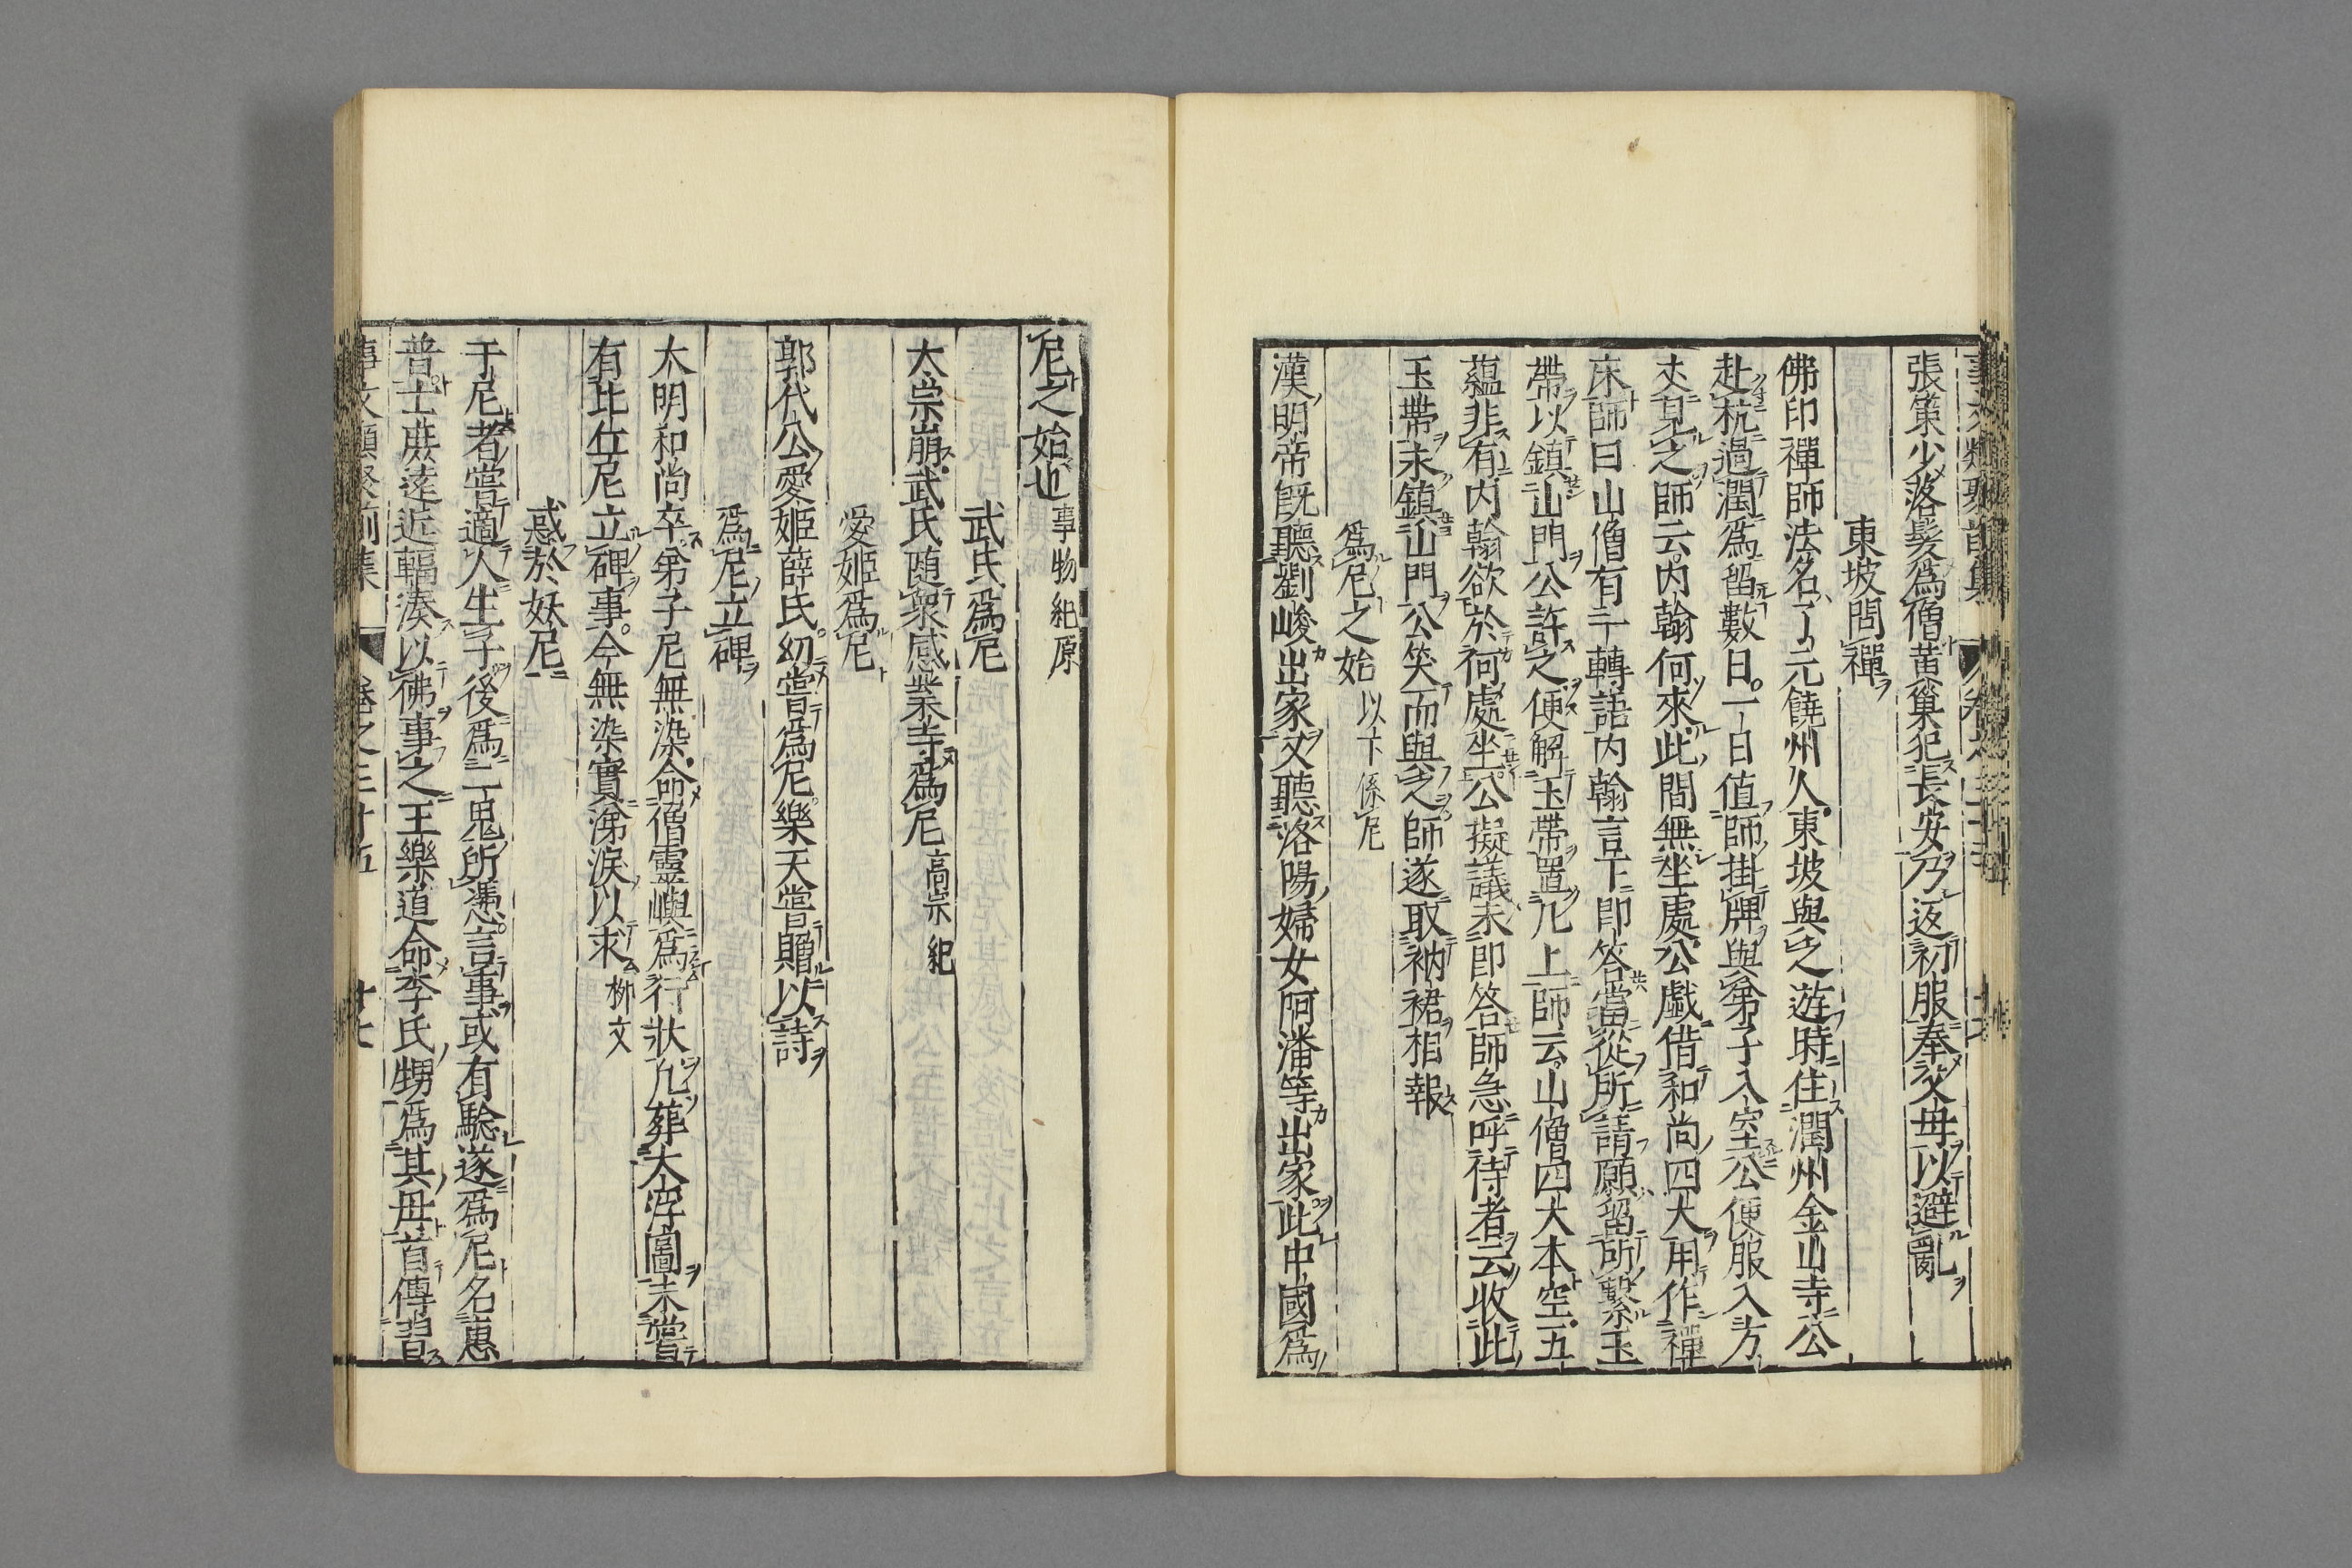 張策少落髮爲僧黃巢犯長安乃返初服奉父母以避亂
東坡問禪
佛印禪師法名了元饒州人東坡與之遊時住潤州金山寺公
赴杭過潤爲留數日一日值師掛牌與弟子入室公便服入方
丈見之師云内翰何來此間無坐處公戲借和尚四大用作禪
床師曰山僧有一轉語内翰言下即答當從所請願留所繫玉
帶以鎮山門公許之便解玉帶置几上師云山僧四大本空五
蘊非有内翰欲於何處坐公擬議未即答師急呼侍者云收此
玉帶永鎮山門公笑而與之師遂取衲裙相報
爲尼之始 以下係尼
漢明帝既聽劉峻出家又聽洛陽婦女阿潘等出家此中國爲
尼之始也 事物紀原
武氏爲尼
太宗崩武氏随衆感業寺爲尼 高宗紀
愛姬爲尼
郭代公愛姬薛氏幼嘗爲尼樂天嘗贈以詩
爲尼立碑
大明和尚卒弟子尼無染命僧靈嶼爲行狀凡葬大浮圖未嘗
有比丘尼立碑事今無染實涕淚以求 柳文
惑於妖尼
于尼者嘗適人生子後爲二鬼所憑言事或有驗遂爲尼名惠
普士庶遠近輻湊以佛事之王樂道命李氏甥爲其母首傳習